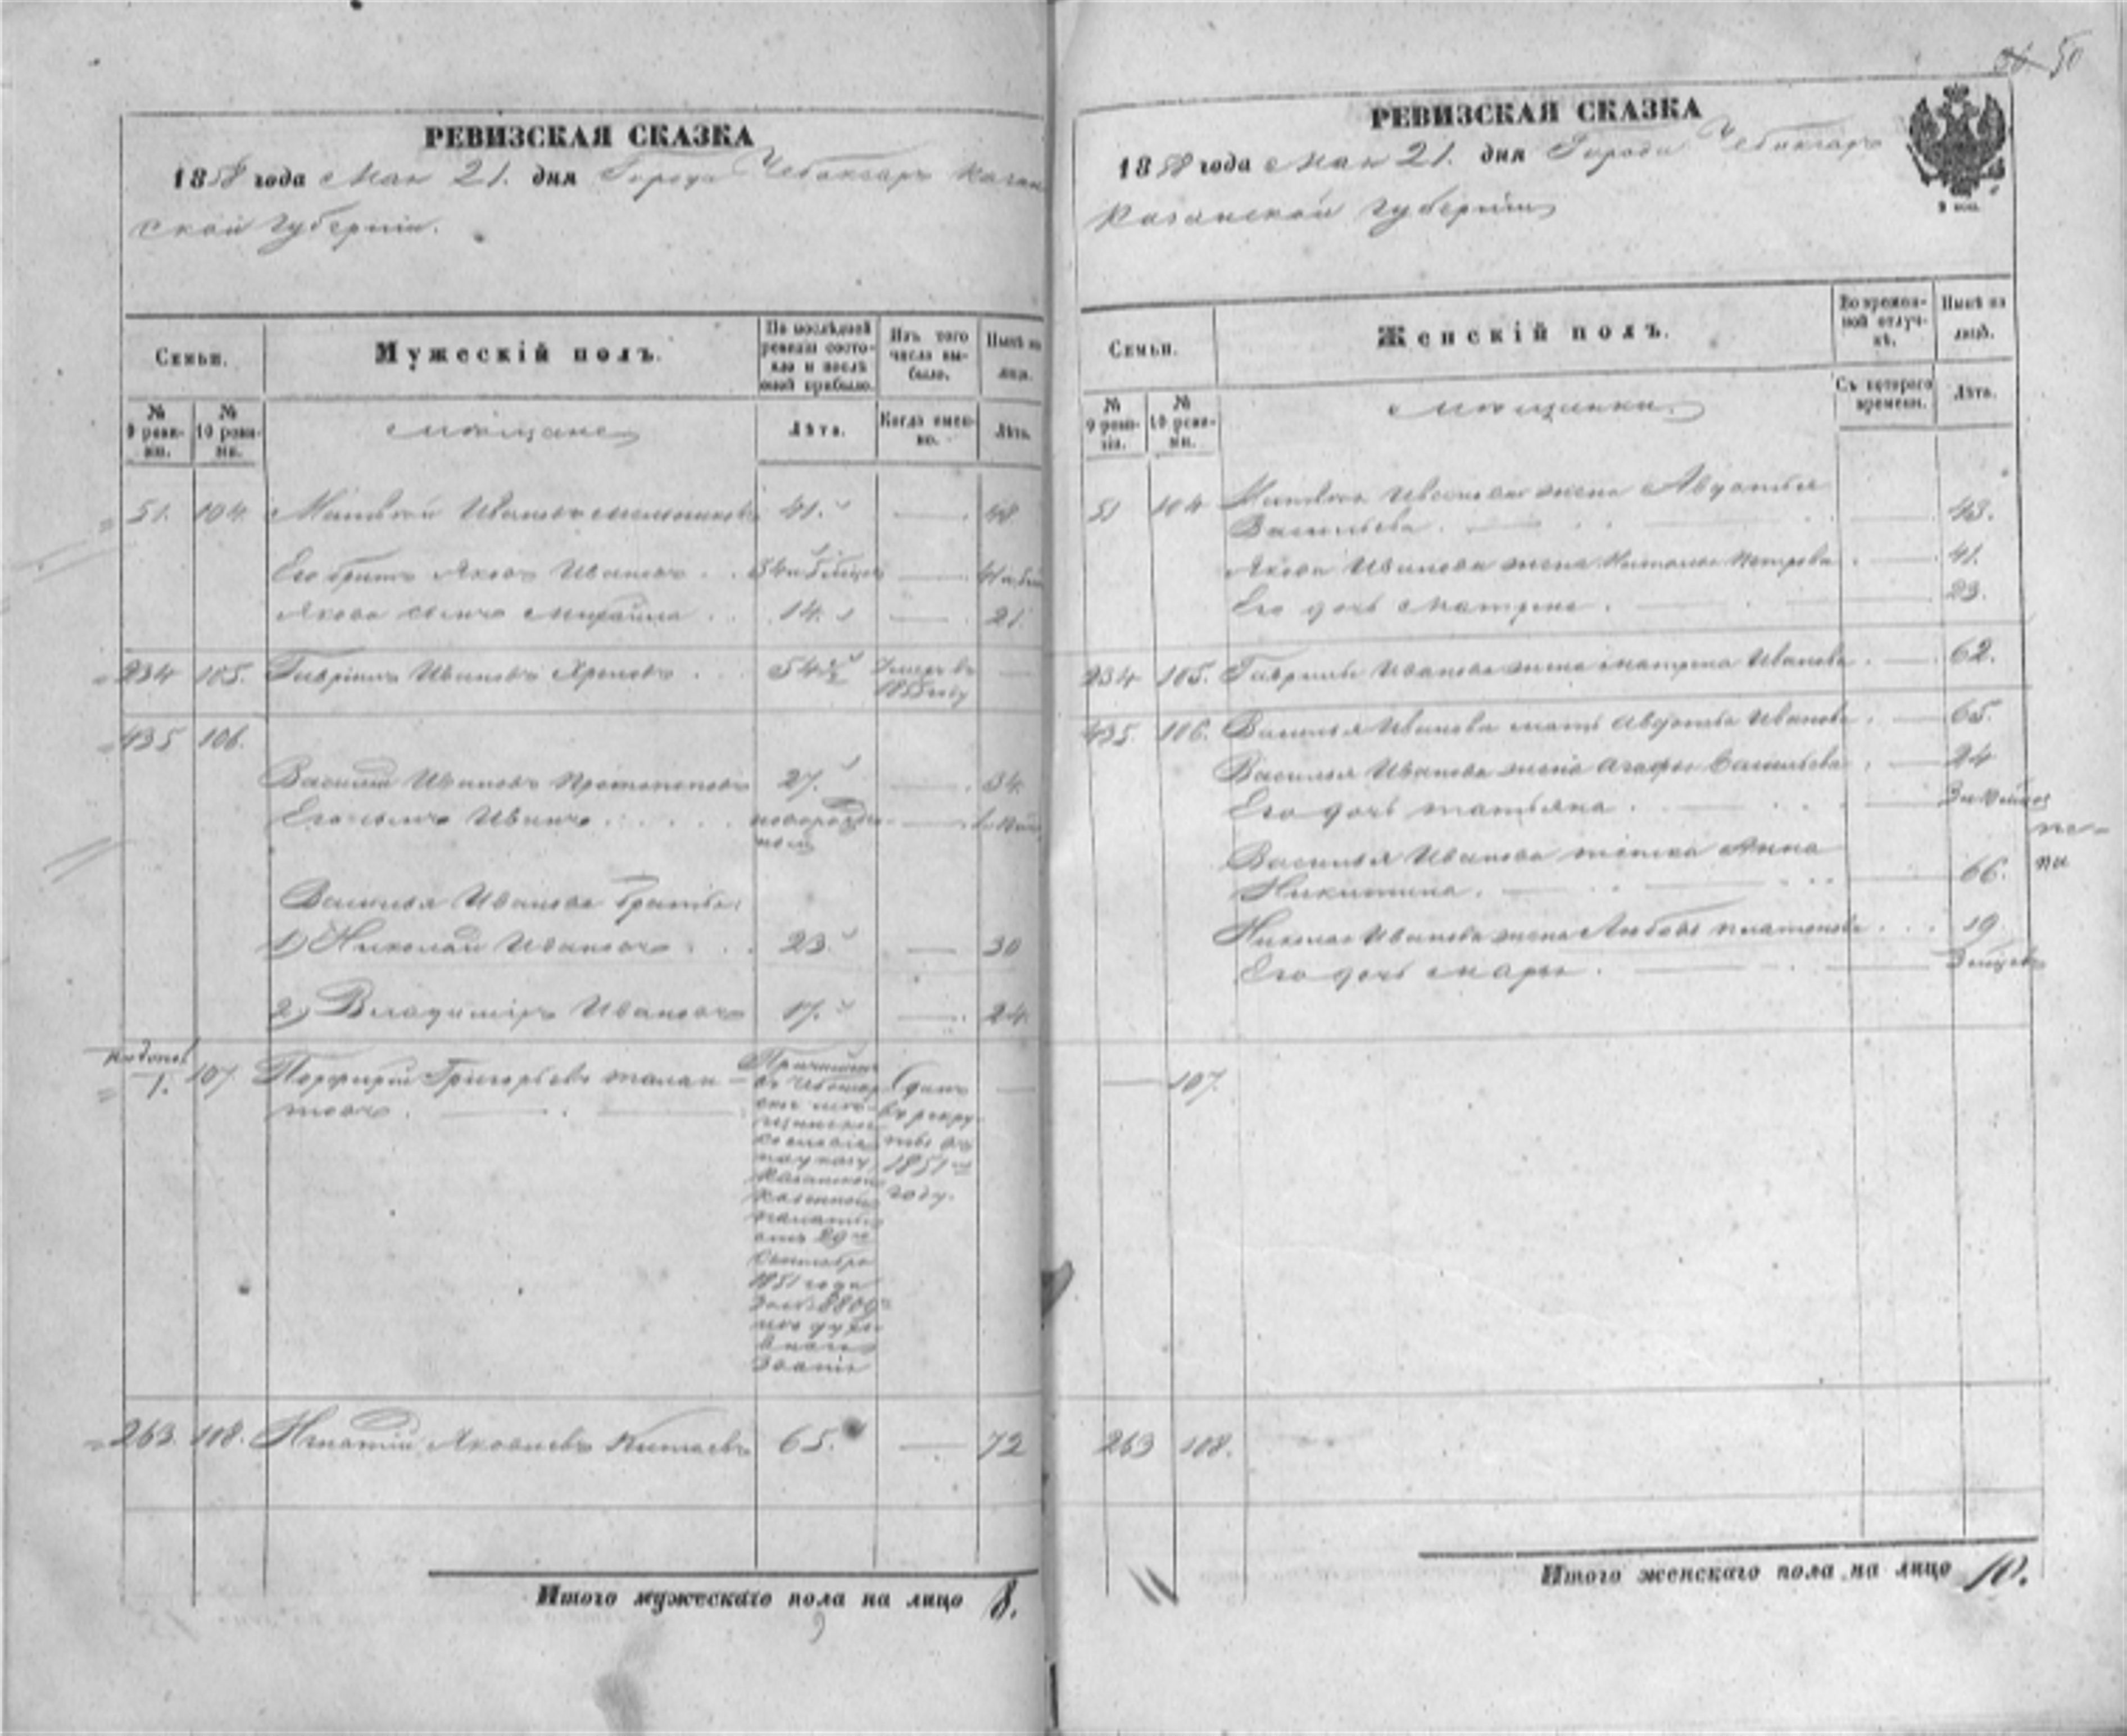 50
РЕВИЗСКАЯ СКАЗКА
1858 года Мая 21. дня Города Чебоксаръ Казан
ской Губерніи.
Семьи.
Мужескій полъ.
По послѣдней ревизіи состояло и послѣ оной прибыло.
Изъ того числа выбыло.
Нынѣ на лицо.
№ 9 ревизіи.
№ 10 ревизіи.
Мѣщане
Лѣта.
Когда именно.
Лѣта.
51. 104. Матвѣй Ивановъ Мельниковъ 41. 48
Его братъ Яковъ Ивановъ
Якова сынъ Михайла 14. 21.
234 105. Гаврилъ Ивановъ Хреновъ 54½ Умеръ въ
1855 году
435 106.
Василій Ивановъ Протопоповъ 27. 34.
Его сынъ Иванъ новорожден
ный
Василья Иванова братья:
1) Николай Ивановъ 23. 30
2) Владиміръ Ивановъ 17. 24.
1. 107. Порфирій Григорьевъ Талан
товъ
Причислен
въ Чебоксар
ское мѣ
щанское
по указу
Казанской
Казенной
палаты
отъ 29го
Сентября
1851 года
за № 8809
изъ духо
внаго
званія
Сданъ
въ рекру
ты въ
1851мъ
году.
263. 108. Игнатій Яковлевъ Китаевъ 65. 72
Итого мужескаго пола на лицо 8.
РЕВИЗСКАЯ СКАЗКА
1858 года Мая 21. дня Города Чебоксаръ
Казанской Губерніи
Семьи.
Женскій полъ.
Во временной отлучкѣ.
Нынѣ на лицѣ.
№ 9 ревизіи.
№ 10 ревизіи.
Мѣщанки.
Съ котораго времени.
Лѣта.
51 104 Матвѣя Иванова жена Авдотья
Васильева. 43.
Якова Иванова жена Наталья Петрова 41.
Его дочь Матрена. 23.
234 105. Гаврилы Иванова жена Матрена Иванова. 62.
435. 106. Василья Иванова мать Авдотья Иванова. 65.
Василья Иванова жена Агафья Васильева 24
Его дочь Татьяна.
Василья Иванова тетка Анна
Никитина. 66.
Николая Иванова жена Любовь Платонова 19
Его дочь Марья.
107.
263 108.
Итого женскаго пола на лицо 10.